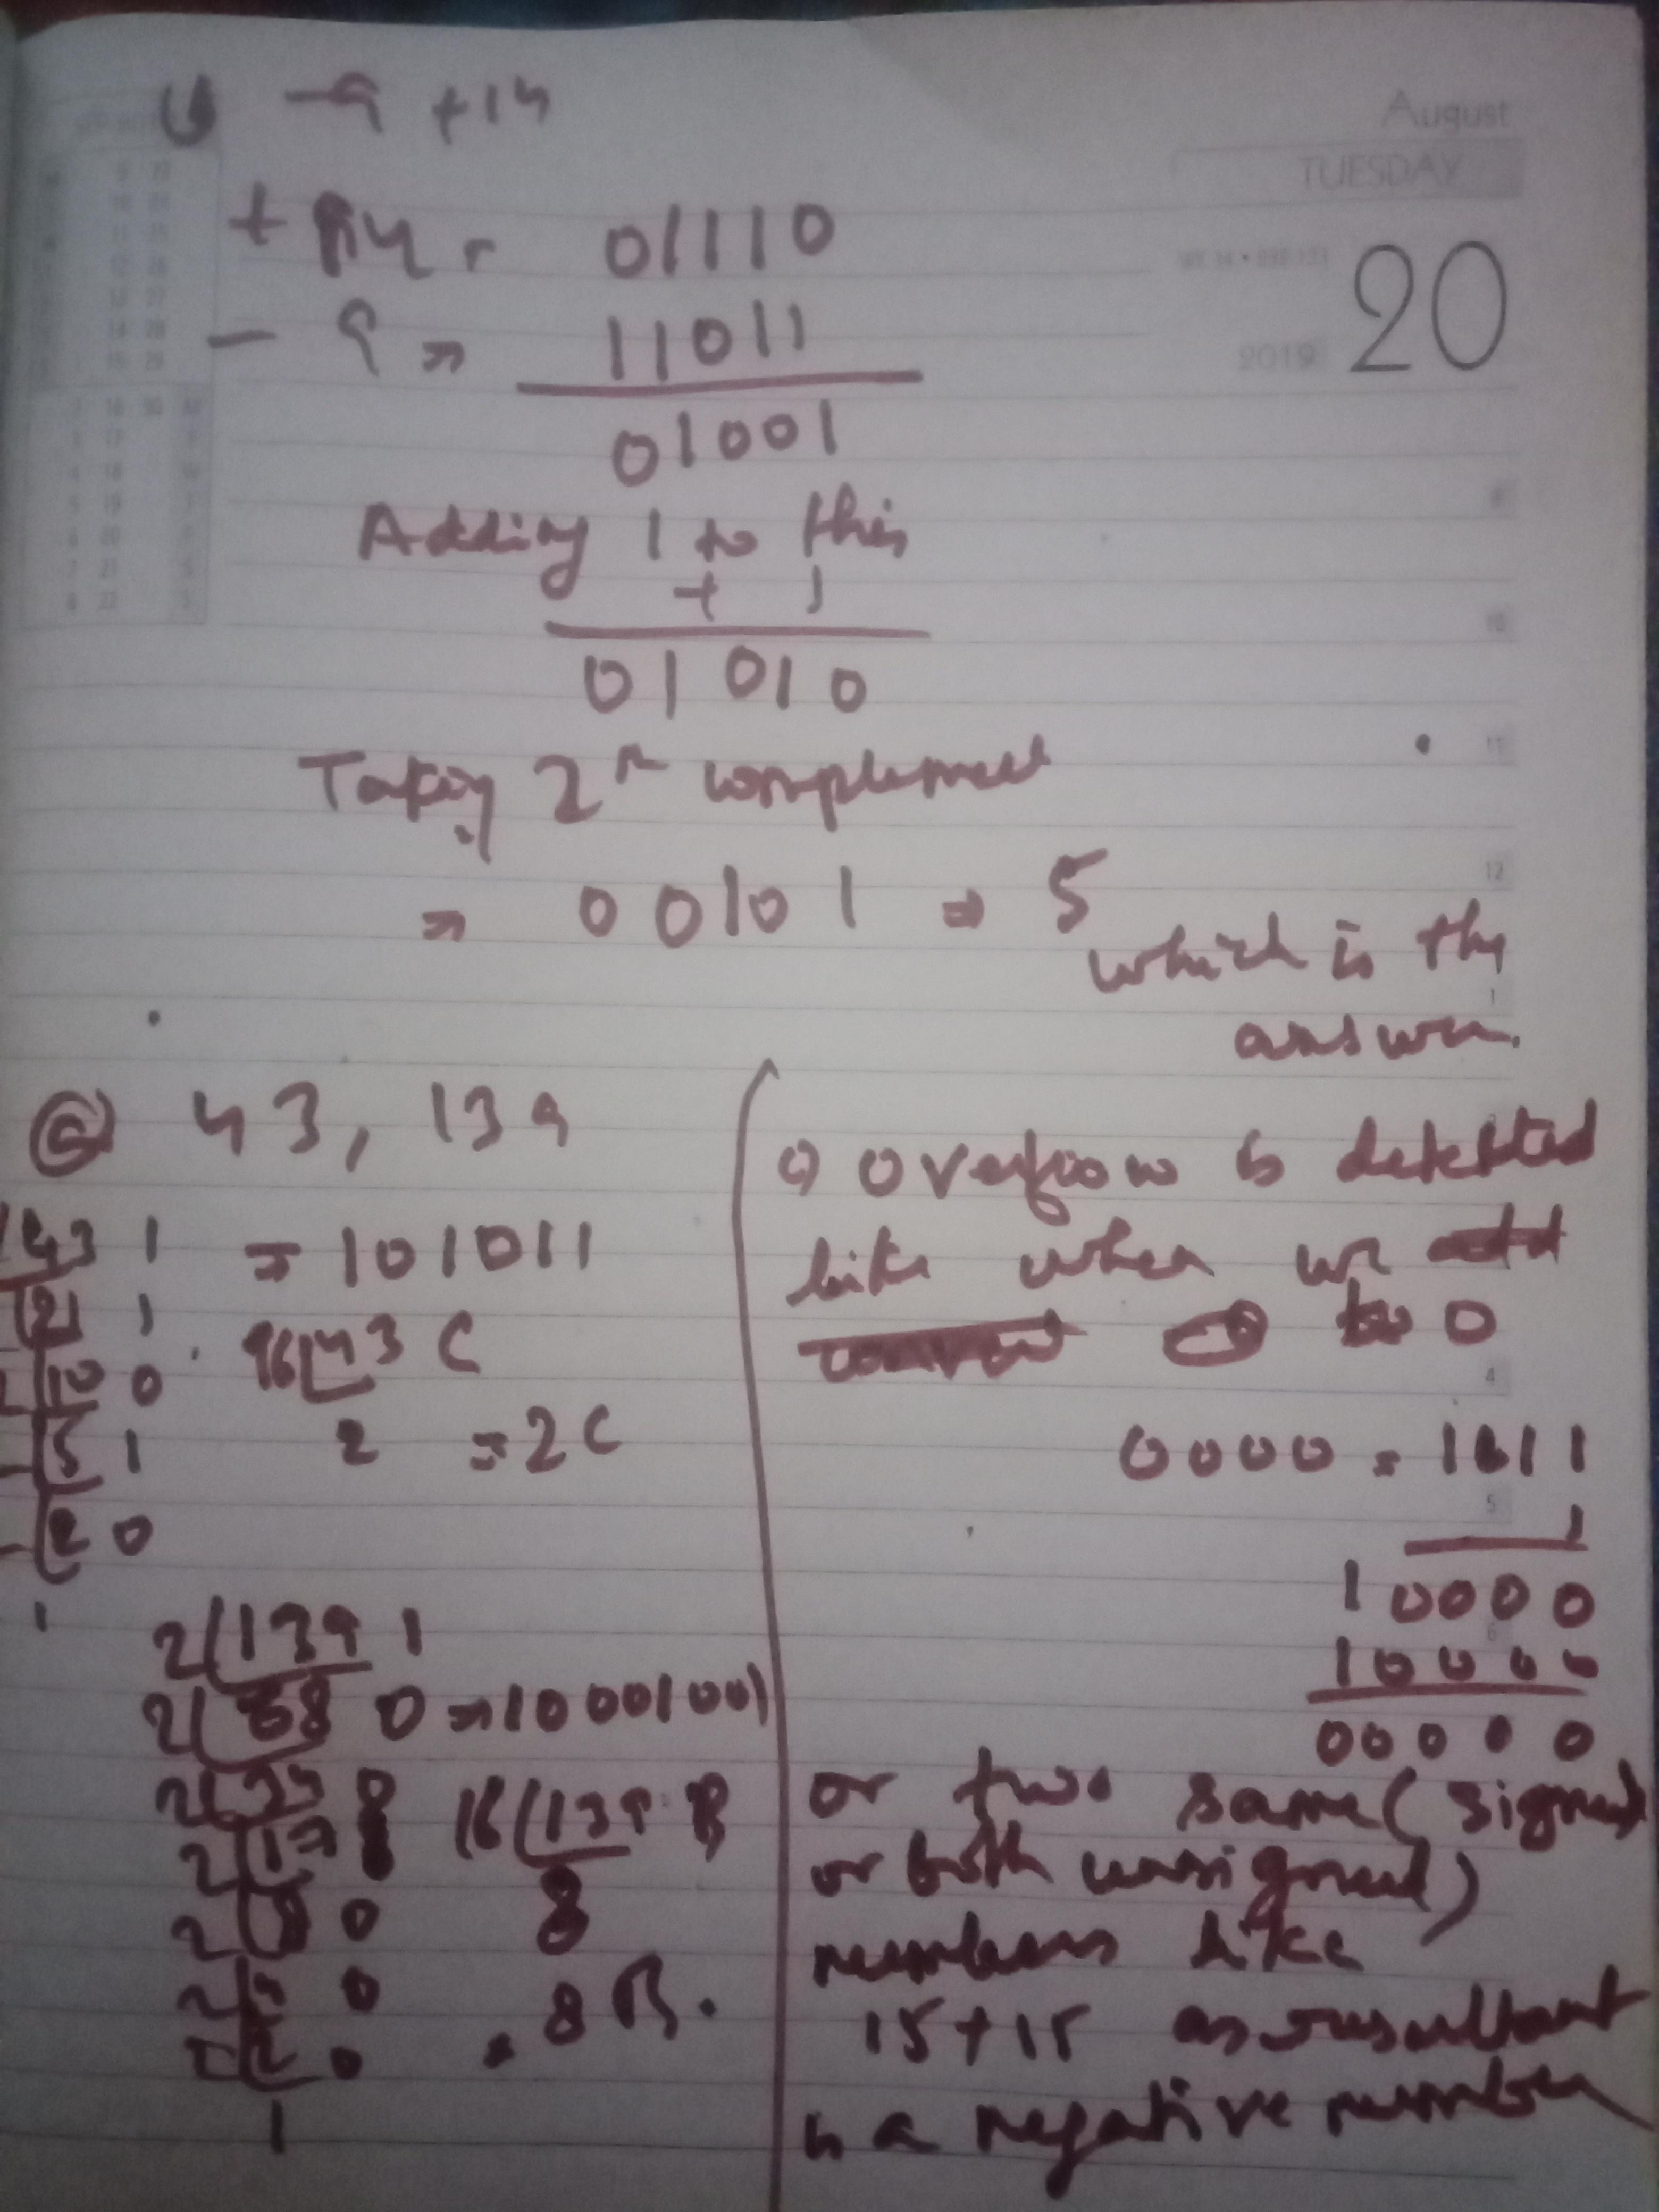 -9 +14
August
TUESDAY
20
2019
+ 14 = 01110
- 9 => 11011
01001
Adding 1 to this
+ 1
01010
Taking 2's complement
=> 00101 => 5
which is the
answer.
43, 139
43 1 = 101011
21 1
16 43 C
10 0
2 = 2C
5 1
2 0
1
2 139 1
2 68 0 => 10001001
2 17
16 139 B
2 8 0
8
2 0
2 0 = 8B.
1
overflow is detected
like when we
to 0
0000 = 1111
1
10000
10000
00000
or two same (signed
or both unsigned)
numbers like
15+15 as resultant
is a negative number